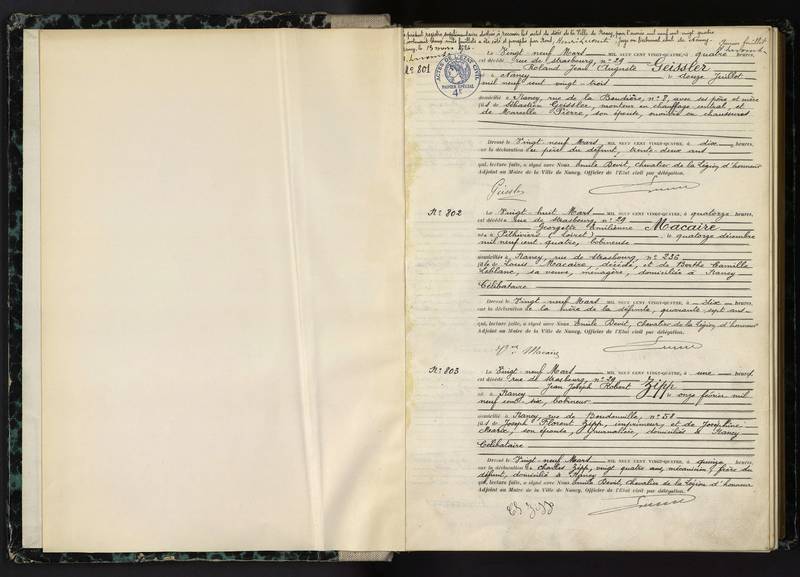 Le présent registre supplémentaire destiné à recevoir les actes de décès de la Ville de Nancy, pour l'année mil neuf cent vingt quatre
contenant feuillets a été coté et paraphé par Nous, Henri Juge au Tribunal civil de Nancy.
Nancy, le 13 mars 1924.
Premier feuillet
N° 801
ACTES DE L'ÉTAT CIVIL
PAPIER SPÉCIAL
4F
Le Vingt-neuf Mars MIL NEUF CENT VINGT-QUATRE, à quatre heures,
est décédé rue de Strasbourg, n° 29
Roland Jean Auguste Geissler
né à Nancy le douze Juillet
mil neuf cent vingt-trois
domicilié à Nancy, rue de la n° 8, avec ses père et mère
fils de Sébastien Geissler, monteur en chauffage central, et
de Marcelle Pierre, son épouse, ouvrière en chaussures
Dressé le Vingt-neuf Mars MIL NEUF CENT VINGT-QUATRE, à dix heures,
sur la déclaration du père du défunt, trente-deux ans
qui, lecture faite, a signé avec Nous Emile Bevit, Chevalier de la Légion d'honneur
Adjoint au Maire de la Ville de Nancy, Officier de l'Etat civil par délégation.
Geissler
N° 802
Le Vingt-huit Mars MIL NEUF CENT VINGT-QUATRE, à quatorze heures,
est décédée rue de Strasbourg, n° 29
Georgette Emilienne Macaire
née à Pithiviers (Loiret) le quatorze décembre
mil neuf cent quatre, bobineuse
domiciliée à Nancy, rue de Strasbourg, n° 236
fille de Louis Macaire, décédé, et de Berthe Camille
Leblanc, sa veuve, ménagère, domiciliée à Nancy
Célibataire
Dressé le Vingt-neuf Mars MIL NEUF CENT VINGT-QUATRE, à dix heures,
sur la déclaration de la mère de la défunte, quarante-sept ans
qui, lecture faite, a signé avec Nous Emile Bevit, Chevalier de la Légion d'honneur
Adjoint au Maire de la Ville de Nancy, Officier de l'Etat civil par délégation.
Vve Macaire
N° 803
Le Vingt-neuf Mars MIL NEUF CENT VINGT-QUATRE, à une heures,
est décédé rue de Strasbourg, n° 29
Jean Joseph Robert Zipp
né à Nancy le onze février mil
neuf cent six, bobineur
domicilié à Nancy, rue de Boudonville, n° 58
fils de Joseph Florent Zipp, imprimeur, et de Joséphine
Marie, son épouse, journalière, domiciliés à Nancy
Célibataire
Dressé le Vingt-neuf Mars MIL NEUF CENT VINGT-QUATRE, à quinze heures,
sur la déclaration de Charles Zipp, vingt quatre ans, mécanicien, frère du
défunt, domicilié à Nancy
qui, lecture faite, a signé avec Nous Emile Bevit, Chevalier de la Légion d'honneur
Adjoint au Maire de la Ville de Nancy, Officier de l'Etat civil par délégation.
Ch Zipp